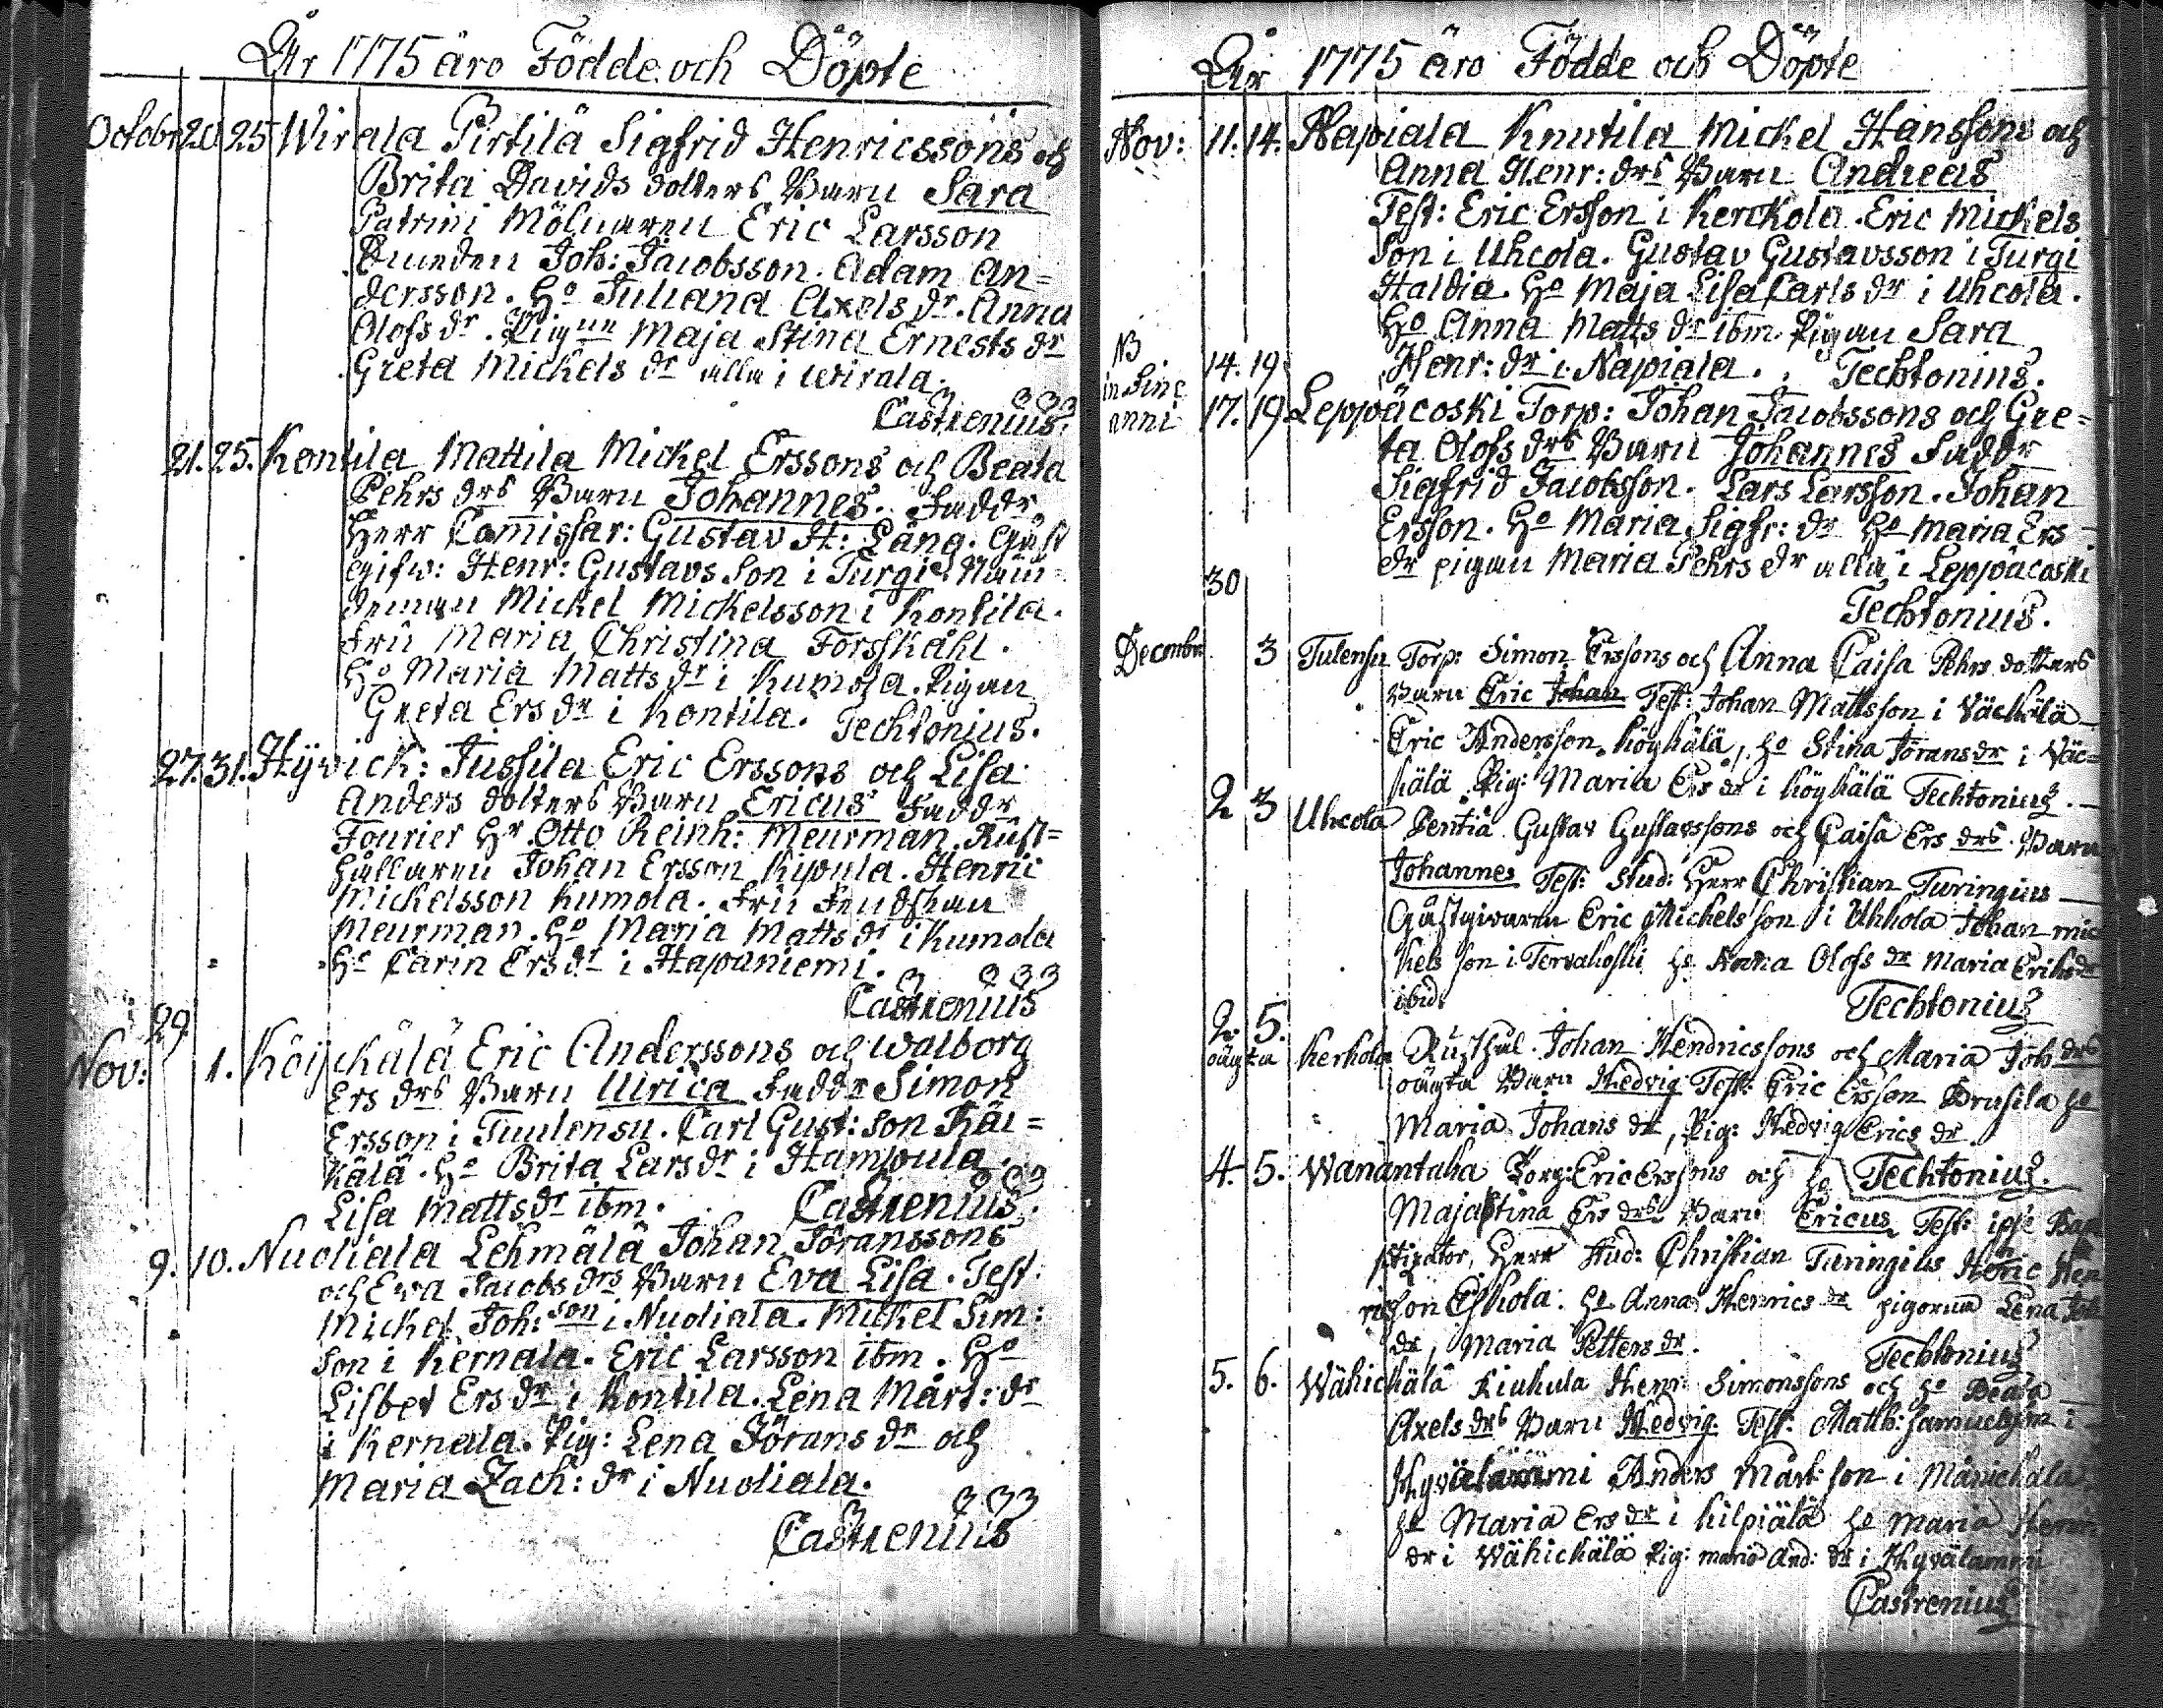 År 1775 äro Födde och Döpte
Octobr 20. 25. Wirala Pirtilä Sigfrid Henricssons och
Brita Davids dotters Barn Sara
Patrini Mölnaren Eric Larsson
Bunden Joh: Jacobsson. Adam An=
dersson. Ho Juliana Axels dr. Anna
Olofs dr. Pigun Maja Stina Ernests dr
Greta Mickels dr alla i Wirala.
Castrenius.
21. 25. Kontila Mattila Mickel Erssons och Beata
Pehrs drs Barn Johannes. Faddr
Herr Comissar: Gustav H: Lång. Gäst
gifw: Henr: Gustavs Son i Turgi. Näm=
deman Mickel Mickelsson i Kontila.
Fru Maria Christina Forsskåhl.
Ho Maria Matts dr i Kumola. Pigan
Greta Ers dr i Kontila. Techtonius.
27. 31. Hyvick: Jussila Eric Erssons och Lisa
Anders dotters Barn Ericus Faddr
Fourier Hr Otto Reinh: Meurman. Rust=
hållaren Johan Ersson Kipula. Henric
Mickelsson Kumola. Fru
Meurman. Ho Maria Matts dr i Kumola
Ho Carin Ers dr i Hapaniemi.
Castrenius
29
Nov: 1. Köyckälä Eric Anderssons och Walborg
Ers drs Barn Ulrica Faddr Simon
Ersson i Tuulensu. Carl Gust: son Räi=
kälä. Ho Brita Lars dr i Hampula.
Lisa Matts dr ibm. Castrenius.
9. 10. Nuoliala Lehmälä Johan Jöranssons
och Ewa Jacobs drs Barn Eva Lisa. Test.
Mickel Joh: son i Nuoliala. Mickel Sim:
son i Kernala. Eric Larsson ibm. Ho
Lisbet Ers dr i Kontila. Lena Mårt: dr
i Kernala. Pig: Lena Jörans dr och
Maria Zach: dr i Nuoliala.
Castrenius
År 1775 äro Födde och Döpte
Nov: 11. 14. Napiala Knutila Mickel Hanssons och
Anna Henr: drs Barn Andreas
Test: Eric Ersson i Kerckola. Eric Mickels
Son i Uhcola. Gustav Gustavsson i Turgi
Haldia. Ho Maja Lisa Carls dr i Uhcola.
Ho Anna Matts dr ibm. Pigan Sara
NB 14. 19. Henr: dr i Napiala. Techtonius.
in fine
anni 17. 19. Leppäcoski Torp: Johan Jacobssons och Gre=
ta Olofs drs Barn Johannes Faddr
Sigfrid Jacobsson. Lars Larsson. Johan
Ersson. Ho Maria Sigfr: dr Ho Maria Ers
dr pigan Maria Pehrs dr alla i Leppäcoski
30
Techtonius.
Decembr 3 Tulensu Torp: Simon Erssons och Anna Caisa Pehrs dotters
Barn Eric Johan Test: Johan Mattsson i Väckälä
Eric Andersson Köyhälä, ho Stina Jörans dr i Väc=
kälä Pig: Maria Ers dr i Köykälä Techtonius.
2 3 Uhcola Pentiä Gustav Gustavssons och Caisa Ers drs Barn
Johannes Test: Stud: Herr Christian Turingius
Gästgivaren Eric Mickels son i Uhkola Johan mic
kels son i Tervakoski ho Anna Olofs dr Maria Eriks dr
ibid: Techtonius
2. 5. Kerkola Rusthål. Johan Hendricssons och Maria Joh drs
oägta oägta Barn Hedvig Test: Eric Ersson Brusila ho
Maria Johans dr, Pig: Hedvig Erics dr
4. 5. Wanantaka Torp: Eric Erssons och ho Techtonius.
Maja Stina Ers drs Barn Ericus Test: ipse Bap
tizator, Herr Stud: Christian Turingius Henric Hen
ricson Eskola: ho Anna Henrics dr pigorna Lena Joh
dr, Maria Petters dr. Techtonius
5. 6. Wähickälä Kiukula Henr: Simonssons och ho Beata
Axels drs Barn Hedvig Test: Matth: Samuelson i
Hyvälammi Anders Mårt: son i Mänickälä
ho Maria Ers dr i Kilpiälä ho maria Henr
dr i Wähickälä Pig: maria And: dr i Hyvälammi
Castrenius